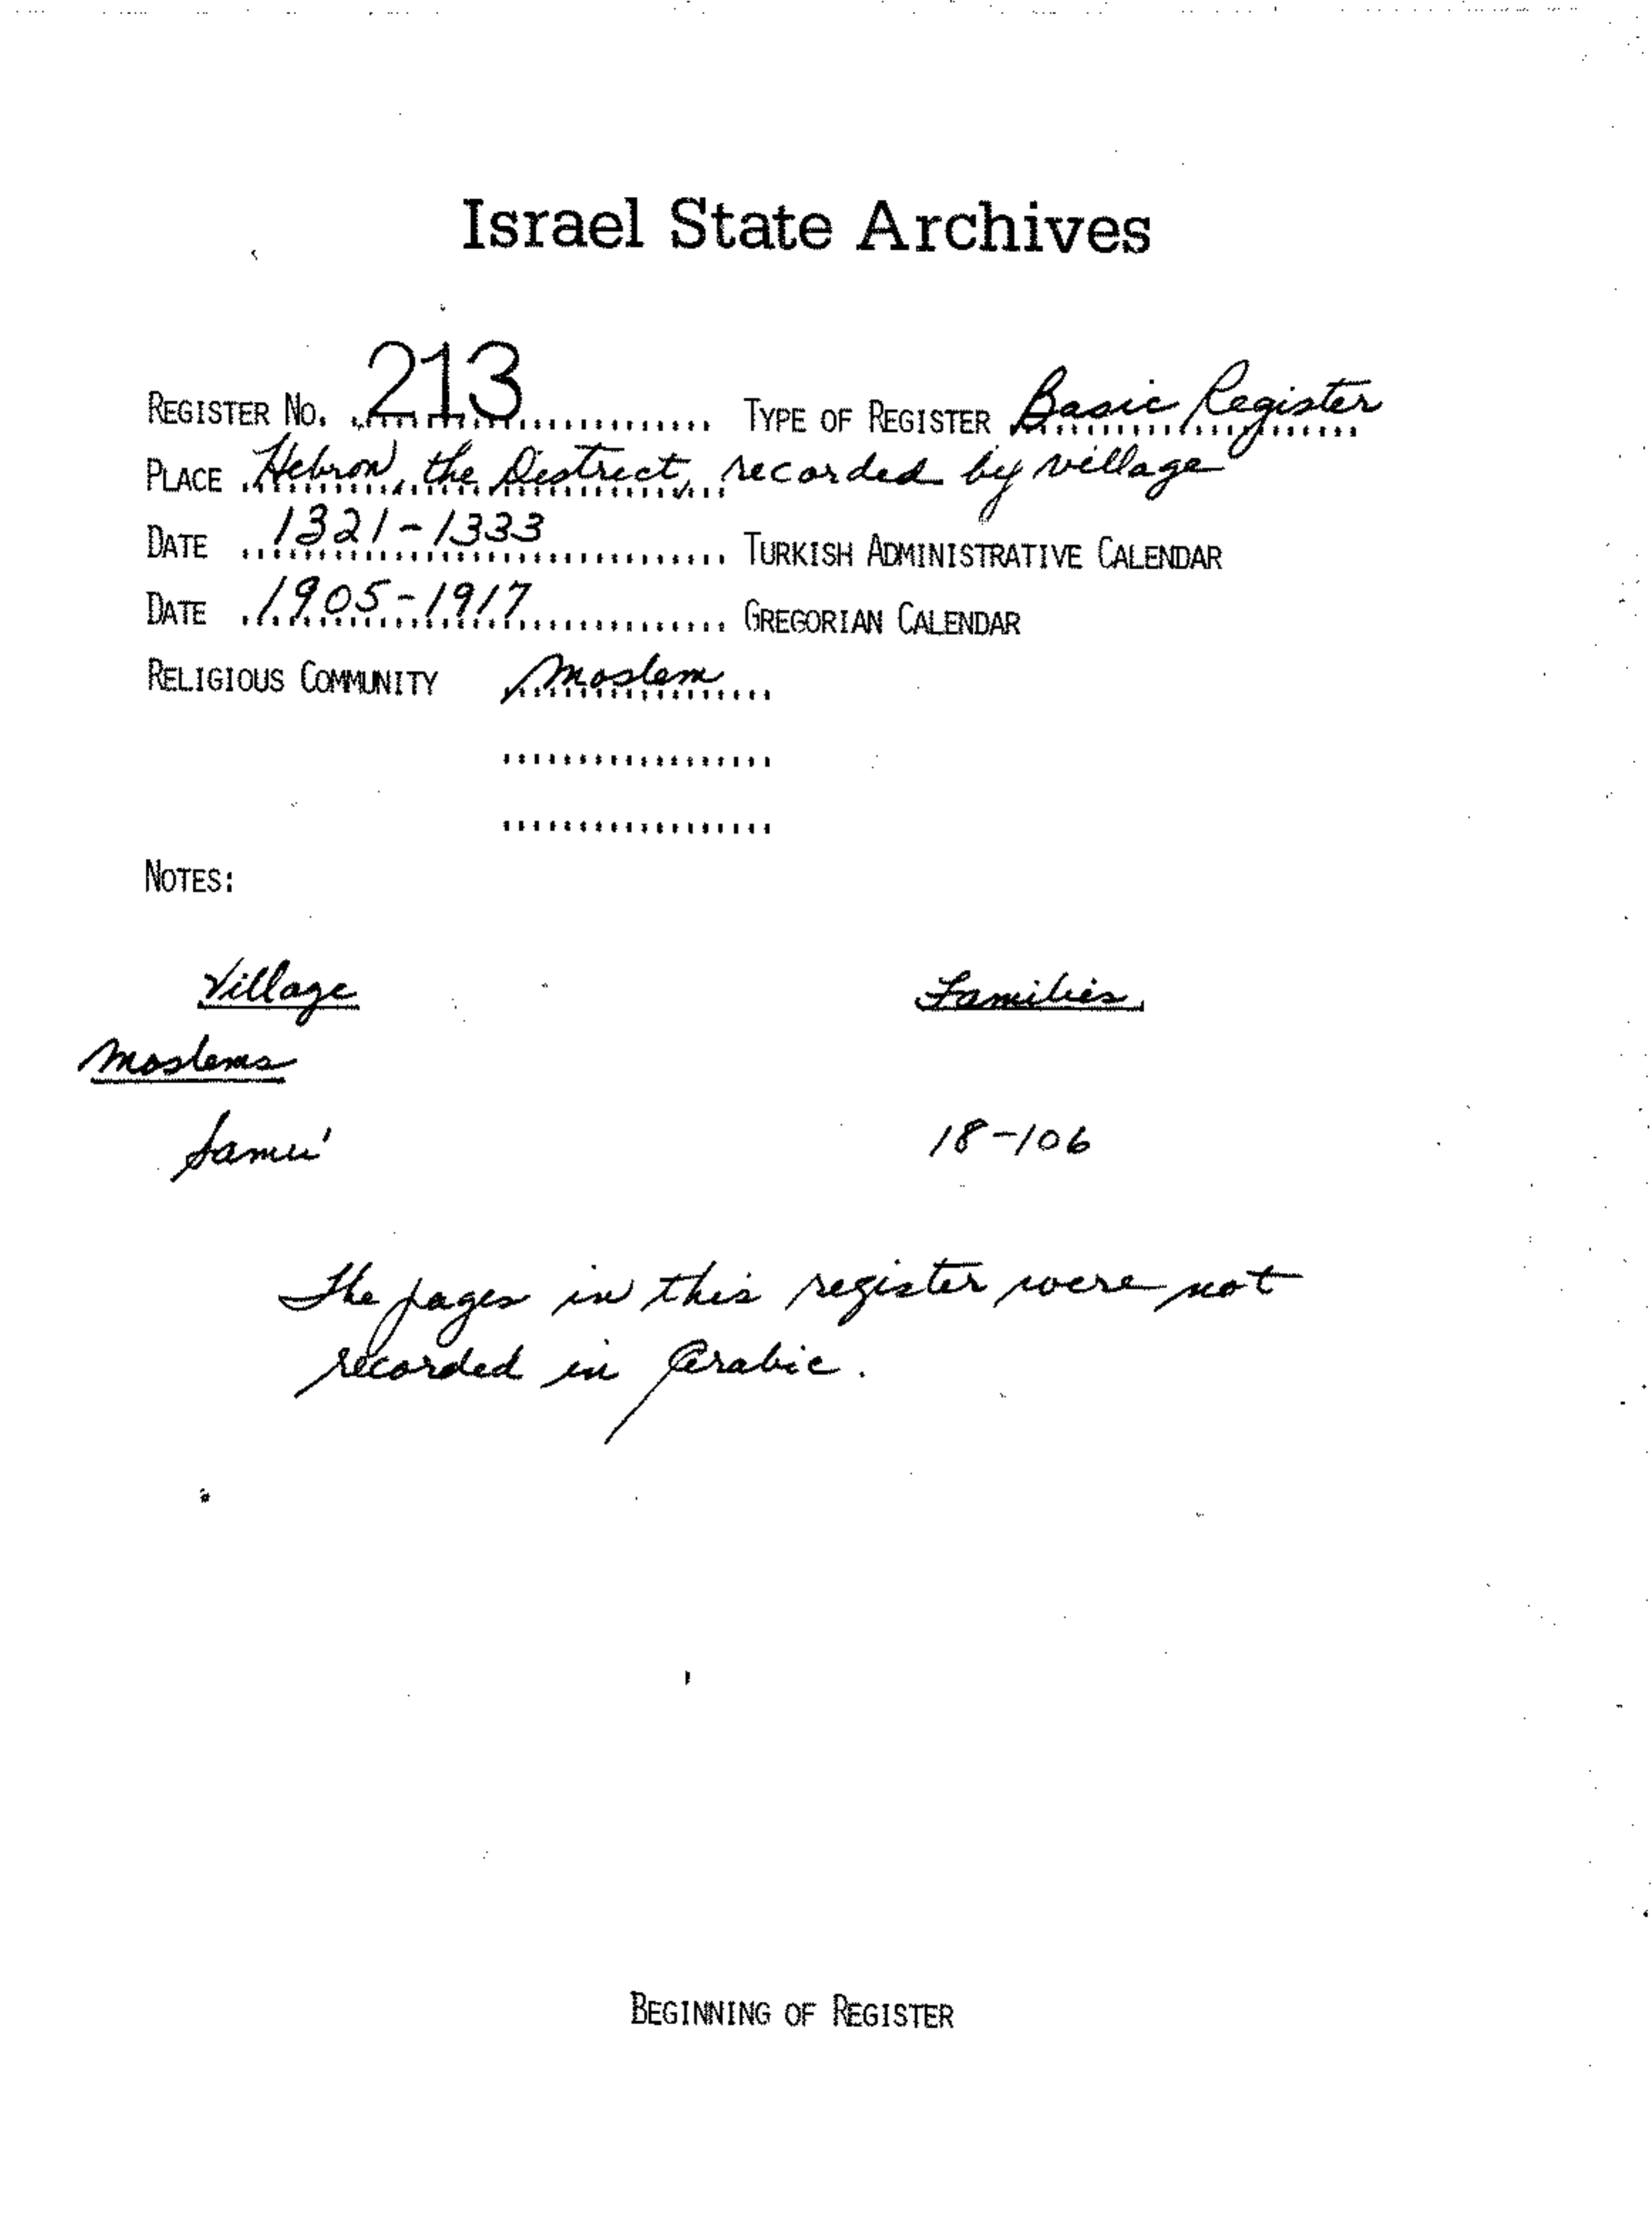 Israel State Archives
REGISTER NO. 213 TYPE OF REGISTER Basic Register
PLACE Hebron, the District, recorded by village
DATE 1321-1333 TURKISH ADMINISTRATIVE CALENDAR
DATE 1905-1917 GREGORIAN CALENDAR
RELIGIOUS COMMUNITY Moslem
NOTES:
Village Families
Moslems
Samu' 18-106
The pages in this register were not
recorded in Arabic.
BEGINNING OF REGISTER